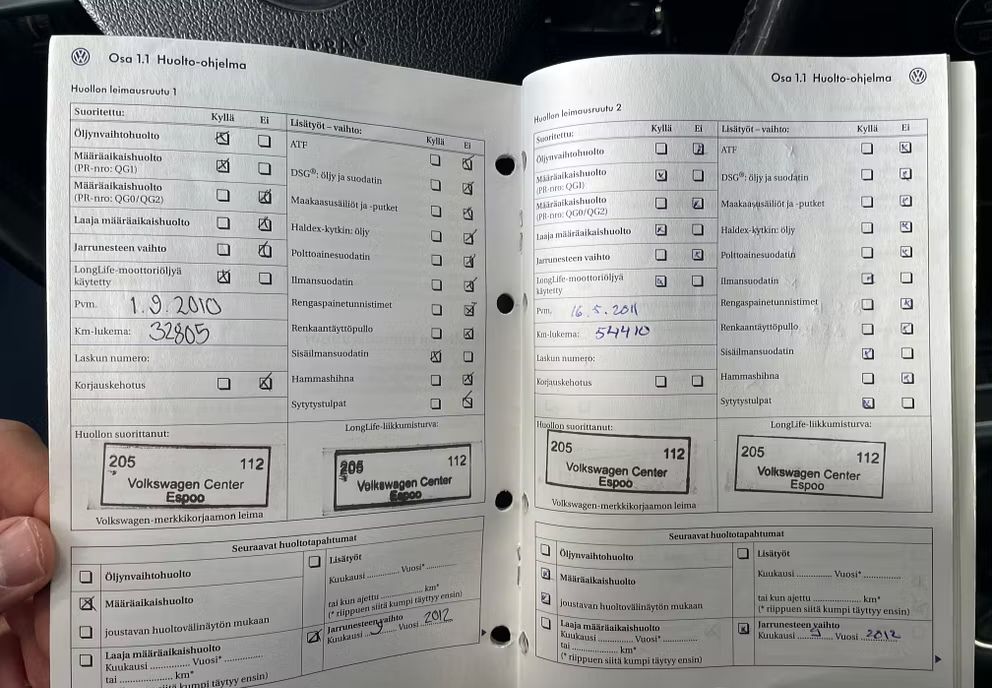 AIRBAG
Osa 1.1 Huolto-ohjelma
Huollon leimausruutu 1
Suoritettu: Kyllä Ei
Öljynvaihtohuolto
Määräaikaishuolto
(PR-nro: QG1)
Määräaikaishuolto
(PR-nro: QG0/QG2)
Laaja määräaikaishuolto
Jarrunesteen vaihto
LongLife-moottoriöljyä
käytetty
Pvm. 1.9.2010
Km-lukema: 32805
Laskun numero:
Korjauskehotus
Lisätyöt – vaihto: Kyllä Ei
ATF
DSG®: öljy ja suodatin
Maakaasusäiliöt ja -putket
Haldex-kytkin: öljy
Polttoainesuodatin
Ilmansuodatin
Rengaspainetunnistimet
Renkaantäyttöpullo
Sisäilmansuodatin
Hammashihna
Sytytystulpat
Huollon suorittanut:
205 112
Volkswagen Center
Espoo
Volkswagen-merkkikorjaamon leima
LongLife-liikkumisturva:
205 112
Volkswagen Center
Espoo
Seuraavat huoltotapahtumat
Öljynvaihtohuolto
Määräaikaishuolto
joustavan huoltovälinäytön mukaan
Laaja määräaikaishuolto
Kuukausi ............. Vuosi* .............
tai ............. km*
(* riippuen siitä kumpi täyttyy ensin)
Lisätyöt
Kuukausi ............. Vuosi* .............
tai kun ajettu ............. km*
(* riippuen siitä kumpi täyttyy ensin)
Jarrunesteen vaihto
Kuukausi 9 Vuosi 2012
Osa 1.1 Huolto-ohjelma
Huollon leimausruutu 2
Suoritettu: Kyllä Ei
Öljynvaihtohuolto
Määräaikaishuolto
(PR-nro: QG1)
Määräaikaishuolto
(PR-nro: QG0/QG2)
Laaja määräaikaishuolto
Jarrunesteen vaihto
LongLife-moottoriöljyä
käytetty
Pvm. 16.5.2011
Km-lukema: 54410
Laskun numero:
Korjauskehotus
Lisätyöt – vaihto: Kyllä Ei
ATF
DSG®: öljy ja suodatin
Maakaasusäiliöt ja -putket
Haldex-kytkin: öljy
Polttoainesuodatin
Ilmansuodatin
Rengaspainetunnistimet
Renkaantäyttöpullo
Sisäilmansuodatin
Hammashihna
Sytytystulpat
Huollon suorittanut:
205 112
Volkswagen Center
Espoo
Volkswagen-merkkikorjaamon leima
LongLife-liikkumisturva:
205 112
Volkswagen Center
Espoo
Seuraavat huoltotapahtumat
Öljynvaihtohuolto
Määräaikaishuolto
joustavan huoltovälinäytön mukaan
Laaja määräaikaishuolto
Kuukausi ............. Vuosi* .............
tai ............. km*
(* riippuen siitä kumpi täyttyy ensin)
Lisätyöt
Kuukausi ............. Vuosi* .............
tai kun ajettu ............. km*
(* riippuen siitä kumpi täyttyy ensin)
Jarrunesteen vaihto
Kuukausi 9 Vuosi 2012